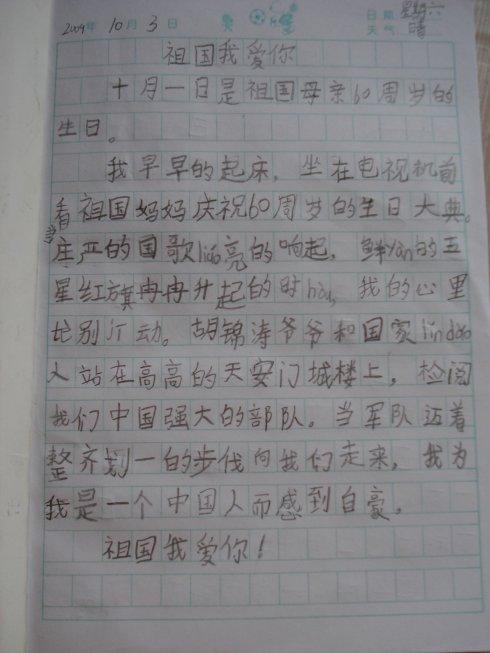 2009年 10月 3日 日期 星期六
天气 晴
祖国我爱你
十月一日是祖国母亲60周岁的
生日。
我早早的起床，坐在电视机前
看祖国妈妈庆祝60周岁的生日大典。
当庄严的国歌liáo亮的响起，鲜yàn的五
星红旗冉冉升起的时hòu，我的心里
比别 动。胡锦涛爷爷和国家lǐndǎo
人站在高高的天安门城楼上，检阅
我们中国强大的部队。当军队迈着
整齐划一的步伐向我们走来，我为
我是一个中国人而感到自豪。
祖国我爱你！